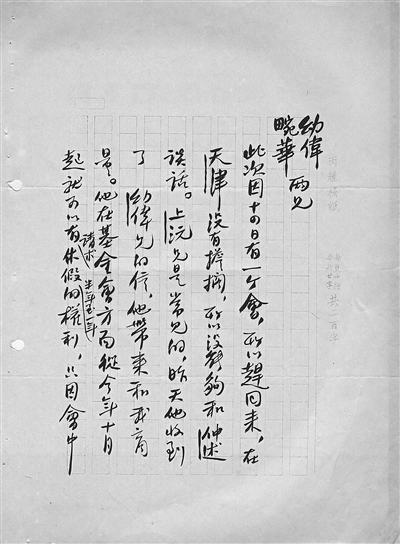 幼偉
畹華 兩兄
此次因十四日有一个會，所以趕回来，在
天津沒有擔擱，所以沒能夠和仲述
談話。上沅兄是常見的，昨天他收到
了幼偉兄的信，他帶来和我商
量。他在基金會方面從今年十月
起就可以有請求休假半年至一年的權利，只因會中